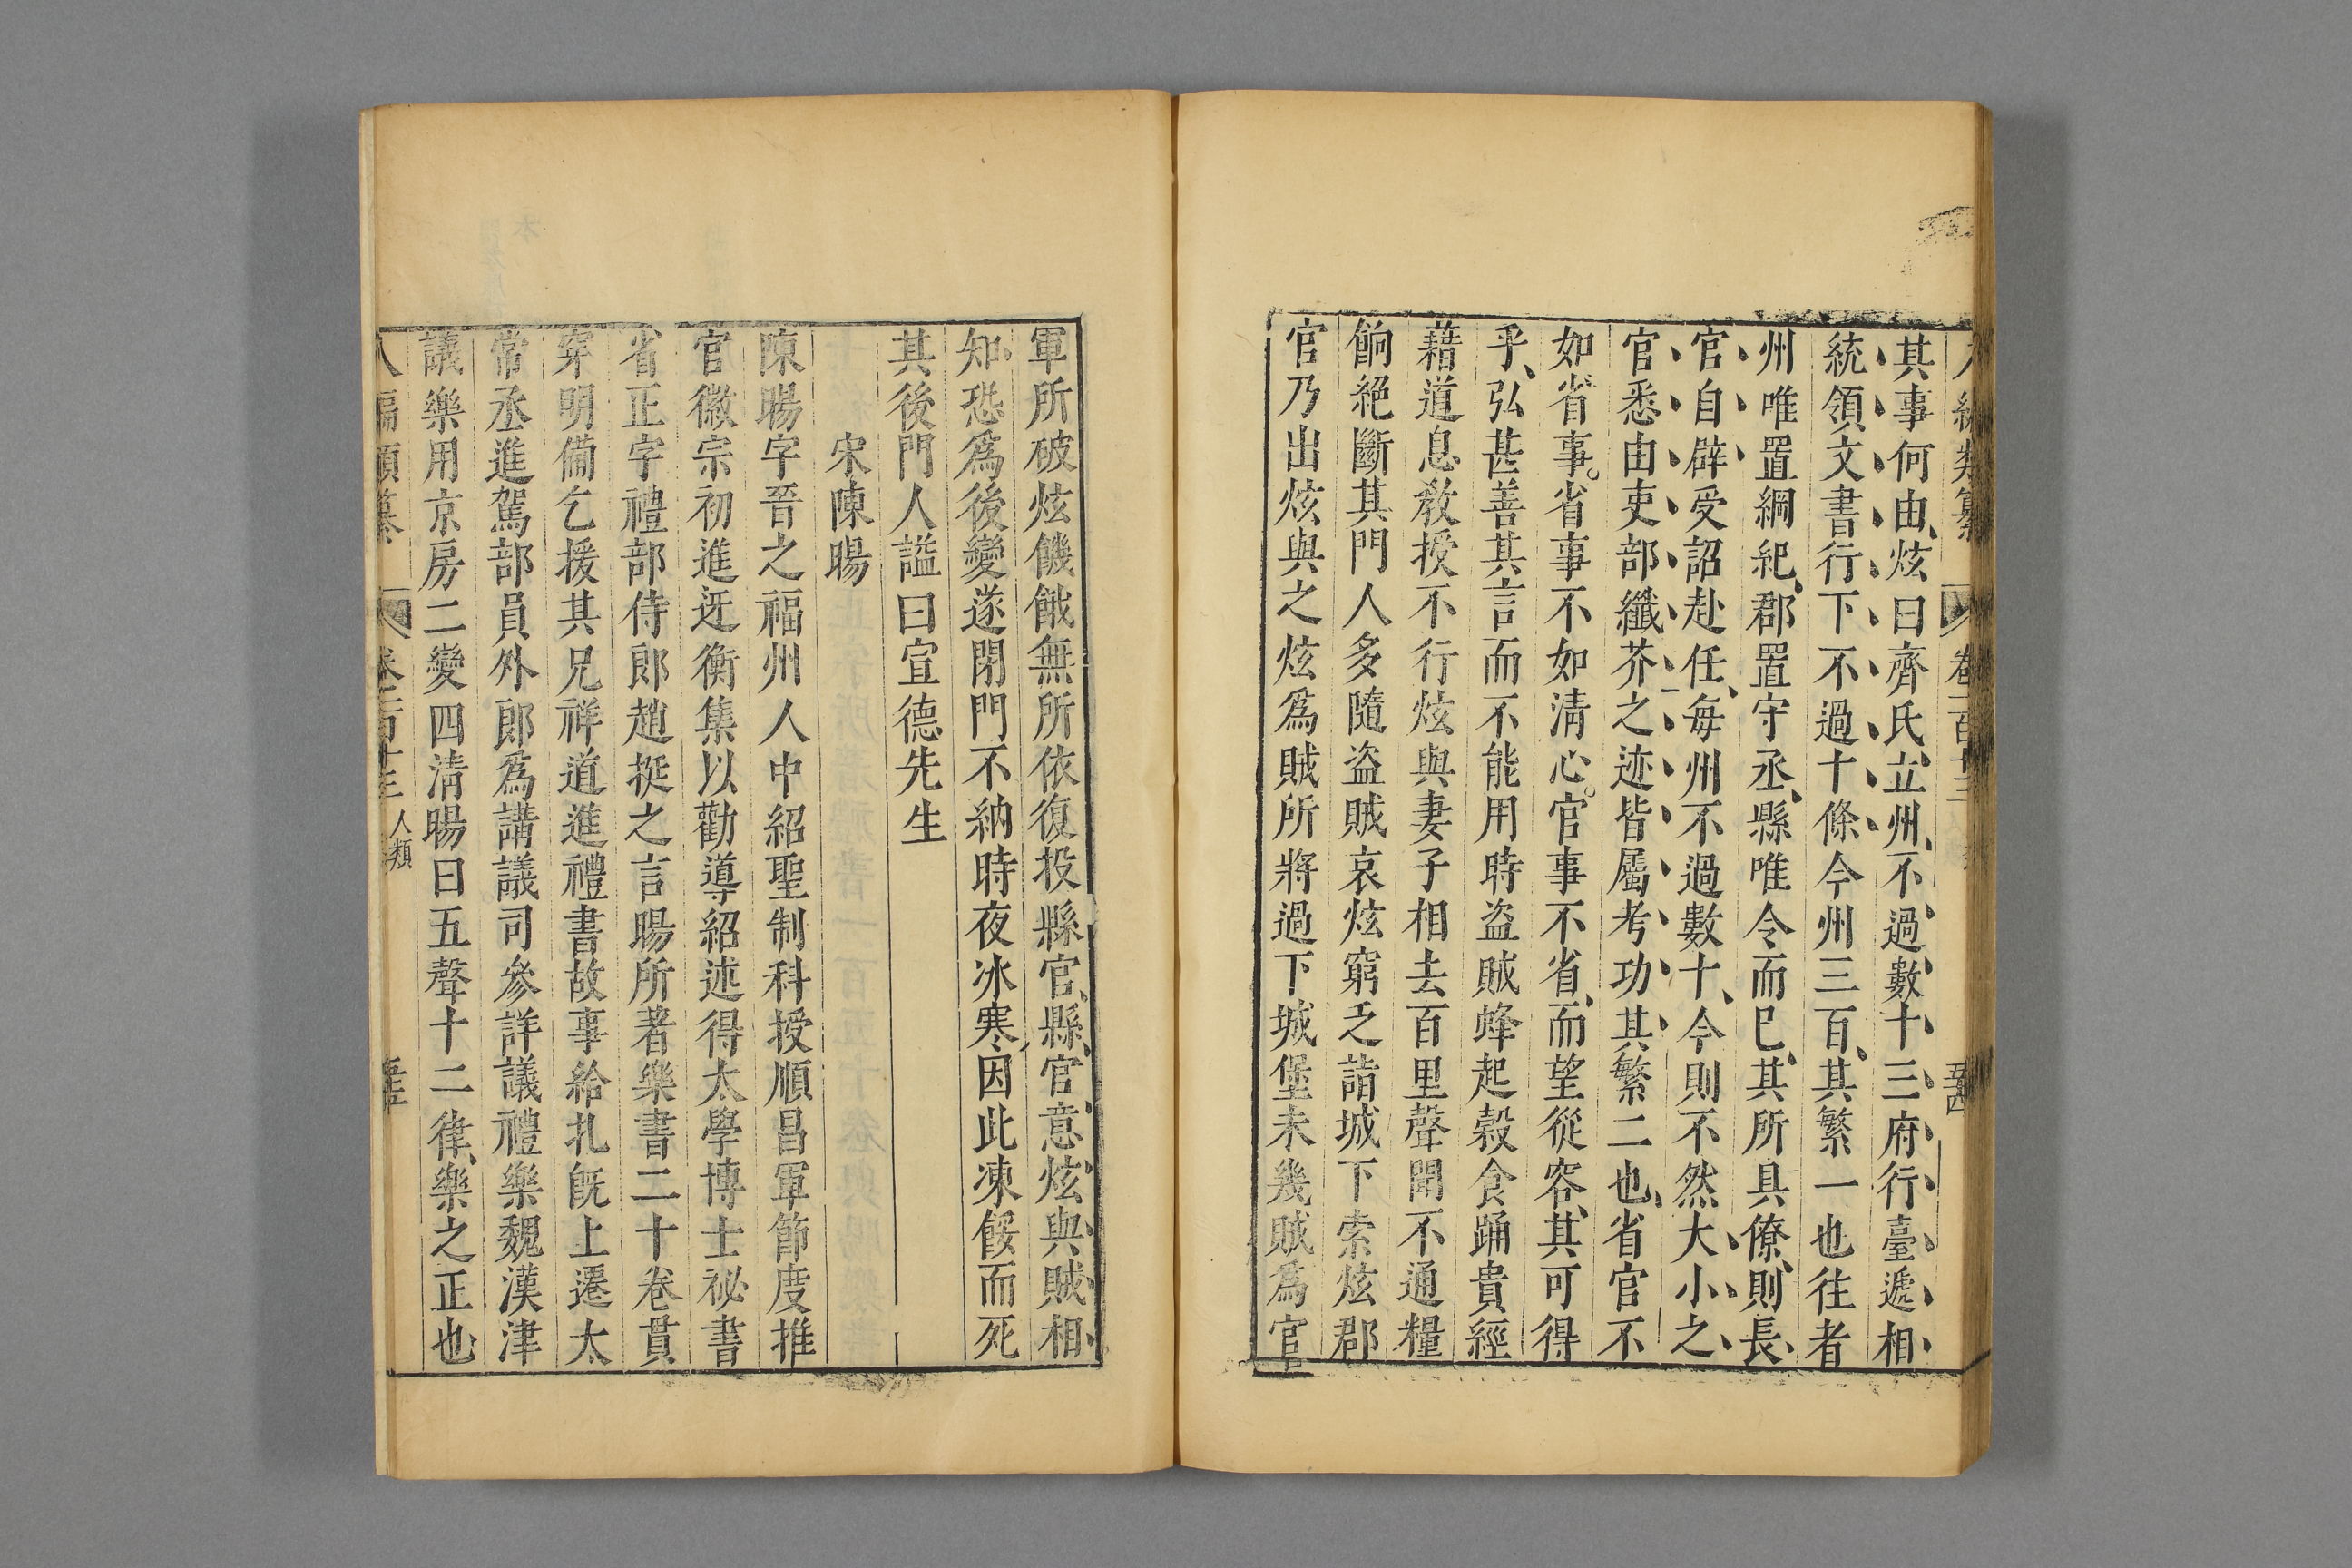 編類纂 卷二百十三 五十四
其事何由炫曰齊氏立州不過數十三府行臺遞相
統領文書行下不過十條今州三百其繁一也往者
州唯置綱紀郡置守丞縣唯令而已其所具僚則長
官自辟受詔赴任每州不過數十今則不然大小之
官悉由吏部纖芥之迹皆屬考功其繁二也省官不
如省事省事不如清心官事不省而望從容其可得
乎弘甚善其言而不能用時盗賊蜂起穀食踊貴經
藉道息教授不行炫與妻子相去百里聲聞不通糧
餉絕斷其門人多隨盗賊哀炫窮乏詣城下索炫郡
官乃出炫與之炫為賊所將過下城堡未幾賊為官
軍所破炫饑餓無所依復投縣官縣官意炫與賊相
知恐為後變遂閉門不納時夜冰寒因此凍餒而死
其後門人謚曰宣德先生
宋陳暘
陳暘字晉之福州人中紹聖制科授順昌軍節度推
官徽宗初進迓衡集以勸導紹述得太學博士祕書
省正字禮部侍郎趙挺之言暘所著樂書二十卷貫
穿明備乞援其兄祥道進禮書故事給札既上遷太
常丞進駕部員外郎為講議司參詳議禮樂魏漢津
議樂用京房二變四清暘曰五聲十二律樂之正也
八編類纂 卷二百十三 人類 五十五